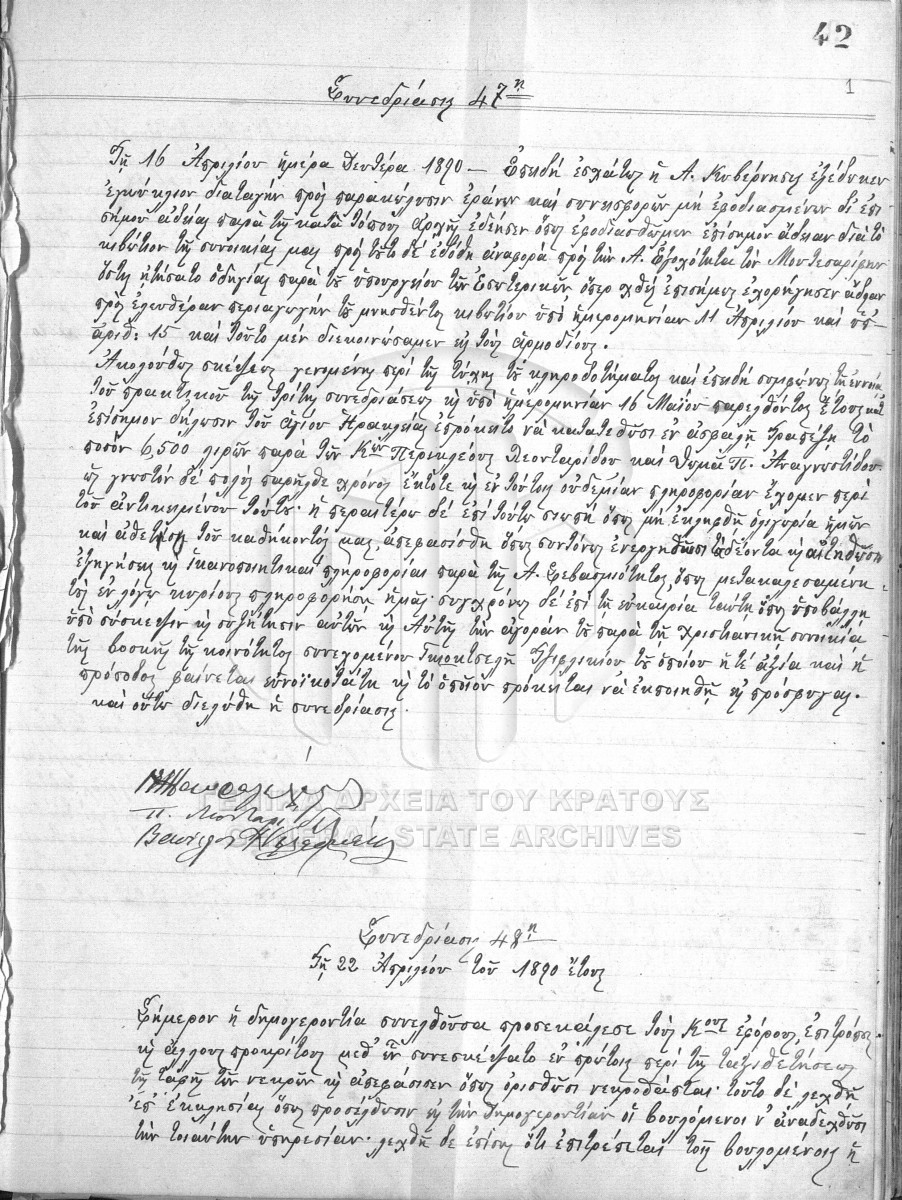 42
1
Συνεδρίασις 47η
Τῇ 16 Ἀπριλίου ἡμέρα Δευτέρα 1890 — Ἐπειδὴ ἐσχάτως ἡ Α. Κυβέρνησις ἐξέδωκεν
ἐγκύκλιον διαταγὴν πρὸς παρακώλυσιν ἐράνων καὶ συνεισφορῶν μὴ ἐφοδιασμένων δι' ἐπι-
σήμου ἀδείας παρὰ τῆς κατὰ τόπους Ἀρχῆς ἐδέησεν ὅπως ἐφοδιασθῶμεν ἐπίσημον ἄδειαν διὰ τὸ
κιβώτιον τῆς συνοικίας μας πρὸς τοῦτο δὲ ἐδόθη ἀναφορὰ πρὸς τὴν Α. Ἐξοχότητα τὸν Μουτεσαρίφην
ὅστις ᾐτήσατο ὁδηγίας παρὰ τοῦ ὑπουργείου τῶν Ἐσωτερικῶν ὅπερ χθὲς ἐπισήμως ἐχορήγησεν ἄδειαν
πρὸς ἐλευθέραν περιαγωγὴν τοῦ μνησθέντος κιβωτίου ὑπὸ ἡμερομηνίαν 11 Ἀπριλίου καὶ ὑπ'
ἀριθ: 15 καὶ τοῦτο μὲν διεκοινώσαμεν εἰς τοὺς ἁρμοδίους.
Ἀκολούθως σκέψεως γενομένης περὶ τῆς τύχης τοῦ κληροδοτήματος καὶ ἐπειδὴ συμφώνως τῇ ἐννοίᾳ
τοῦ πρακτικοῦ τῆς τρίτης συνεδριάσεως κ ὑπὸ ἡμερομηνίαν 16 Μαΐου παρελθόντος ἔτους κατ'
ἐπίσημον δήλωσιν τοῦ ἁγίου Ἡρακλείας ἐπρόκειτο νὰ κατατεθῶσι ἐν ἀσφαλεῖ Τραπέζῃ τὸ
ποσὸν 6,500 λιρῶν παρὰ τῶν Κων Περικλέους Λεονταρίδου καὶ Θωμᾶ Π. Ἀναγνωστίδου
ὡς γνωστὸν δὲ πολὺς παρῆλθε χρόνος ἔκτοτε κ ἐν τούτοις οὐδεμίαν πληροφορίαν ἔχομεν περὶ
τοῦ ἀντικειμένου τούτου· ἡ περαιτέρω δὲ ἐπὶ τούτῳ σιωπὴ ὅπως μὴ ἐκληφθῇ ὀλιγωρία ἡμῶν
καὶ ἀθέτησις τοῦ καθήκοντός μας, ἀπεφασίσθη ὅπως συντόνως ἐνεργηθῶσι τὰ δέοντα κ αἰτηθῶσι
ἐξηγήσεις κ ἱκανοποιητικαὶ πληροφορίαι παρὰ τῆς Α. Σεβασμιότητος, ὅπως μετακαλεσαμένη
τοὺς ἐν λόγῳ κυρίους πληροφορήσῃ ἡμᾶς· συγχρόνως δὲ ἐπὶ τῇ εὐκαιρίᾳ ταύτῃ ὅπως ὑποβάλλῃ
ὑπὸ σύσκεψιν κ συζήτησιν αὐτῶν κ Αὐτῆς τὴν ἀγορὰν τοῦ παρὰ τῇ χριστιανικῇ συνοικίᾳ
τῆς βοσκῆς τῆς κοινότητος συνεχομένου Τσιφλικίου τοῦ ὁποίου ἥ τε ἀξία καὶ ἡ
πρόσοδος φαίνεται εὐνοϊκωτάτη κ τὸ ὁποῖον πρόκειται νὰ ἐκποιηθῇ εἰς πρόσφυγας.
καὶ οὕτω διελύθη ἡ συνεδρίασις.
Π. Λεονταρίδης
ΓΕΝΙΚΑ ΑΡΧΕΙΑ ΤΟΥ ΚΡΑΤΟΥΣ
GENERAL STATE ARCHIVES
Συνεδρίασις 48η
Τῇ 22 Ἀπριλίου τοῦ 1890 ἔτους
Σήμερον ἡ δημογεροντία συνελθοῦσα προσεκάλεσε τοὺς Κους ἐφόρους, ἐπιτρόπους
κ ἄλλους προκρίτους μεθ' ὧν συνεσκέψατο ἐν πρώτοις περὶ τῆς ταξιθετήσεως
τῆς ταφῆς τῶν νεκρῶν κ ἀπεφάσισεν ὅπως ὁρισθῶσι νεκροθάπται· τοῦτο δὲ λεχθῇ
ἐπ' ἐκκλησίας ὅπως προσέλθωσιν εἰς τὴν Δημογεροντίαν οἱ βουλόμενοι ν' ἀναδεχθῶσι
τὴν τοιαύτην ὑπηρεσίαν· λεχθῇ δὲ ἐπίσης ὅτι ἐπιτρέπεται τοῖς βουλομένοις ἢ